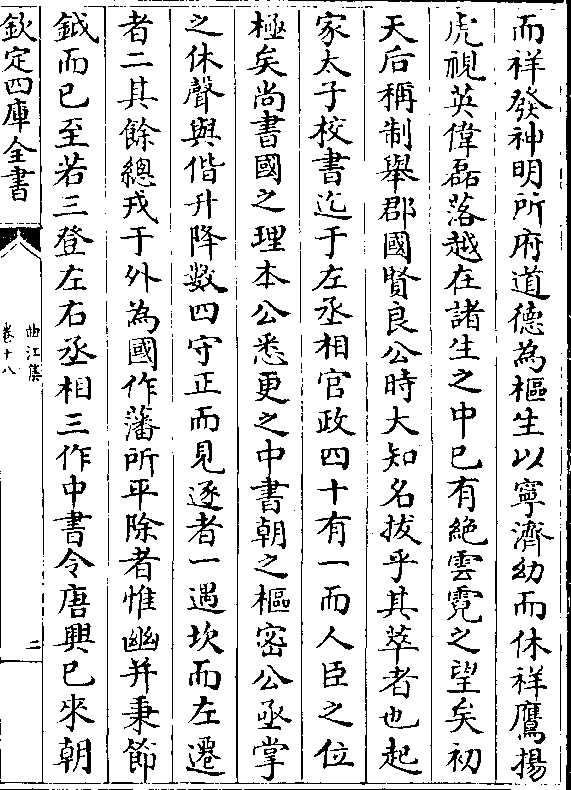 而祥發神明所府道德為樞生以寧濟幼而休祥鷹揚
虎視英偉磊落越在諸生之中已有絶雲霓之望矣初
天后稱制舉郡國賢良公時大知名拔乎其萃者也起
家太子校書迄于左丞相官政四十有一而人臣之位
極矣尚書國之理本公悉更之中書朝之樞密公亟掌
之休聲與偕升降數四守正而見逐者一遇坎而左遷
者二其餘總戎于外為國作藩所平除者惟幽并秉節
鉞而已至若三登左右丞相三作中書令唐興已來朝
欽定四庫全書
曲江集
卷十八
二